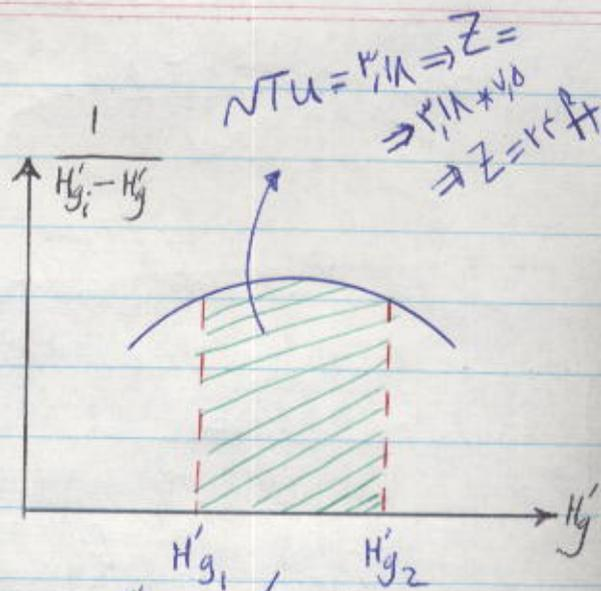 NTU = ۳,۱۸ ⇒ Z =
⇒ ۳,۱۸ * ۷,۵
⇒ Z = ۲۴ ft
1
H'gᵢ − H'g
H'g
H'g₁
H'g₂